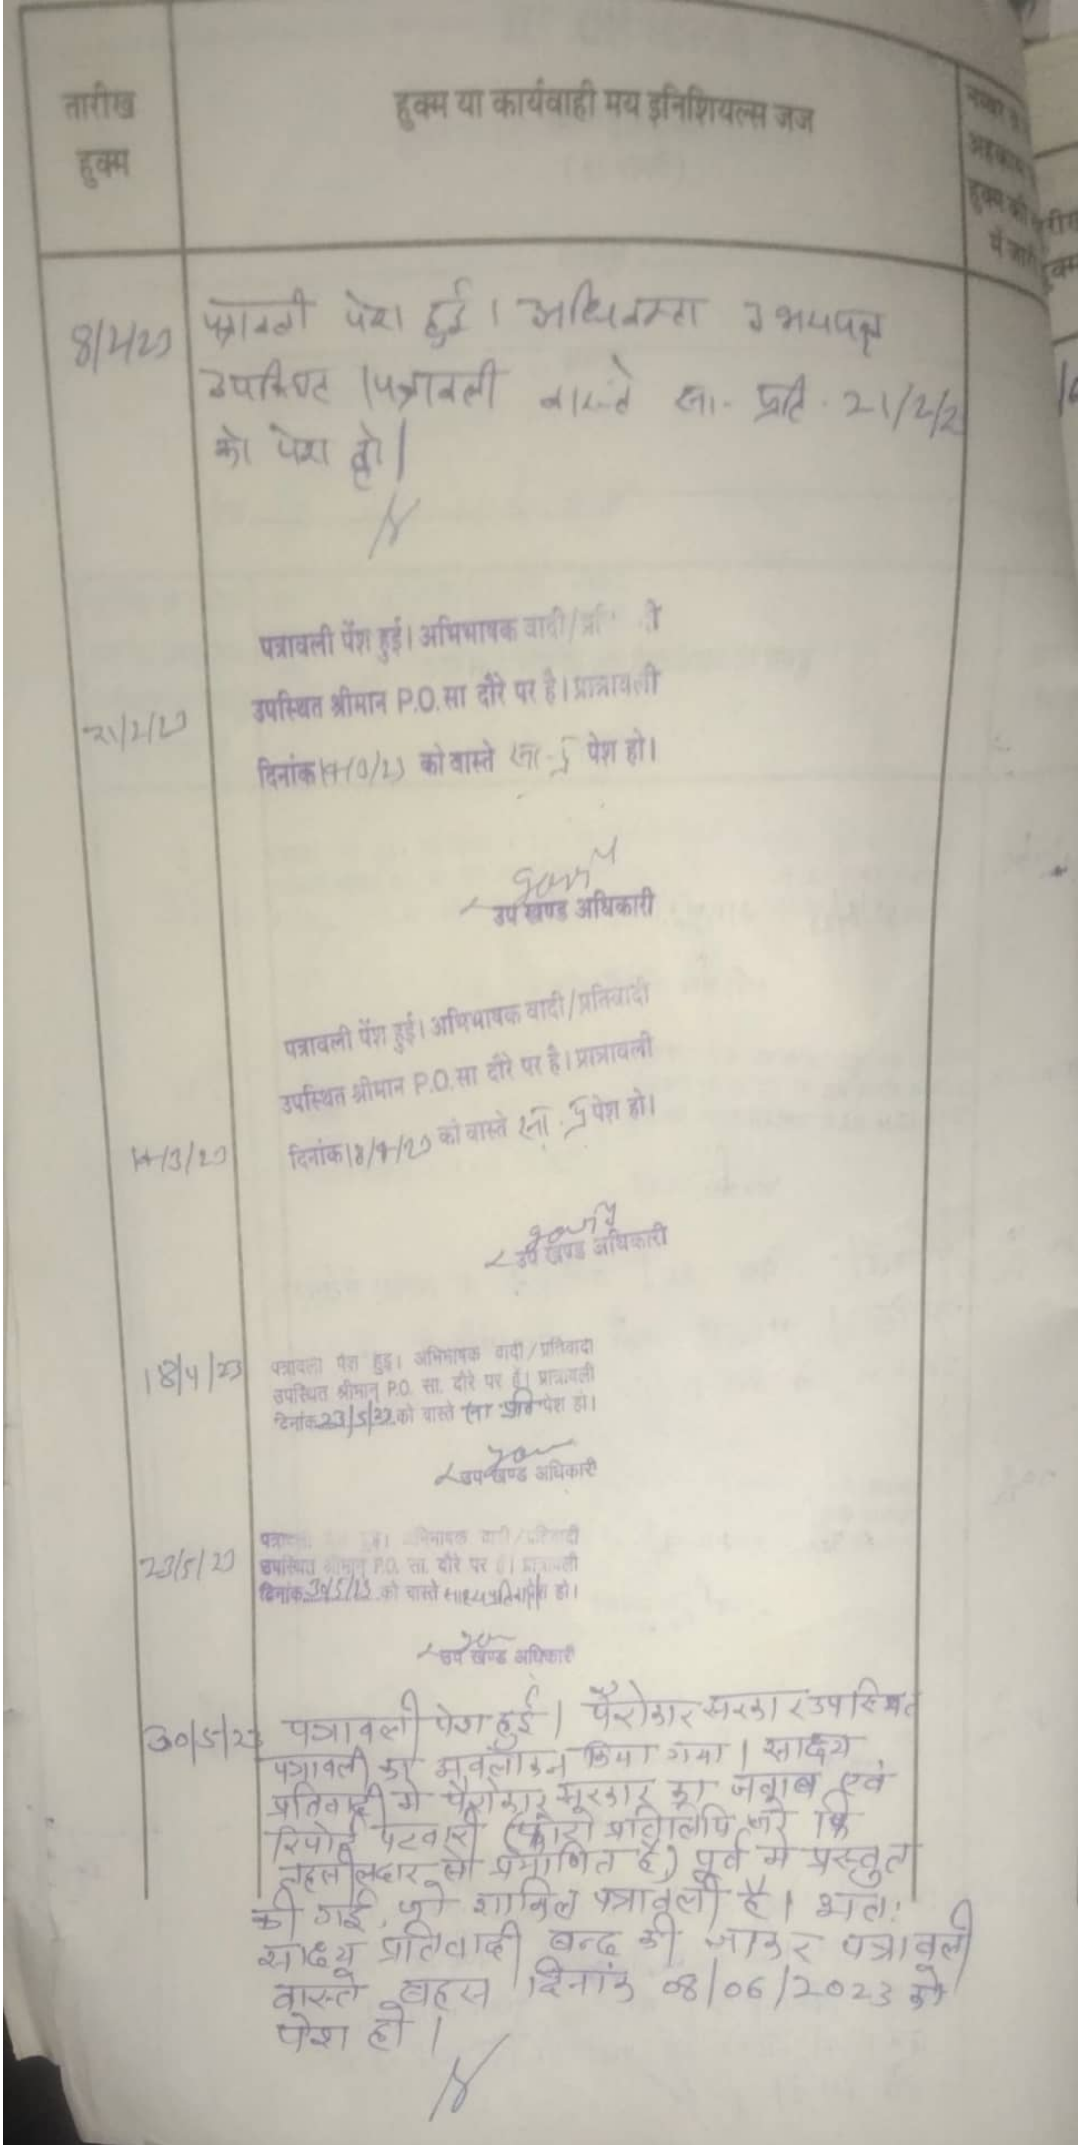 तारीख
हुक्म
हुक्म या कार्यवाही मय इनिशियल्स जज
हुक्म की
में जारी
8/2/23
पत्रावली पेश हुई। अधिवक्ता उभयपक्ष
उपस्थित। पत्रावली वास्ते सा. प्रति. 21/2/2
को पेश हो।
21/2/23
पत्रावली पेंश हुई। अभिभाषक वादी/
उपस्थित श्रीमान P.O. सा दौरे पर है। प्रात्रावली
दिनांक को वास्ते सा. प्र पेश हो।
उप खण्ड अधिकारी
पत्रावली पेंश हुई। अभिभाषक वादी/प्रतिवादी
उपस्थित श्रीमान P.O. सा दौरे पर है। प्रात्रावली
14/3/23
दिनांक 18/4/23 को वास्ते सा. प्र पेश हो।
उप खण्ड अधिकारी
18/4/23
पत्रावली पेश हुई। अभिभाषक वादी/प्रतिवादी
उपस्थित श्रीमान् P.O. सा. दौरे पर है। प्रात्रावली
दिनांक 23/5/23 को वास्ते सा प्रति पेश हो।
उप खण्ड अधिकारी
23/5/23
पत्रावली हुई। अभिभाषक वादी/प्रतिवादी
उपस्थित श्रीमान् P.O. सा. दौरे पर है। प्रात्रावली
दिनांक 30/5/23 को वास्ते साक्ष्य प्रतिवादी पेश हो।
उप खण्ड अधिकारी
30/5/23
पत्रावली पेश हुई। पैरोकार सरकार उपस्थित
पत्रावली का अवलोकन किया गया। साक्ष्य
प्रतिवादी में पैरोकार सरकार का जवाब एवं
रिपोर्ट पटवारी (फोटो प्रतिलिपि जो कि
तहसीलदार से प्रमाणित है) पूर्व में प्रस्तुत
की गई, जो शामिल पत्रावली है। अतः
साक्ष्य प्रतिवादी बन्द की जाकर पत्रावली
वास्ते बहस दिनांक 08/06/2023 को
पेश हो।